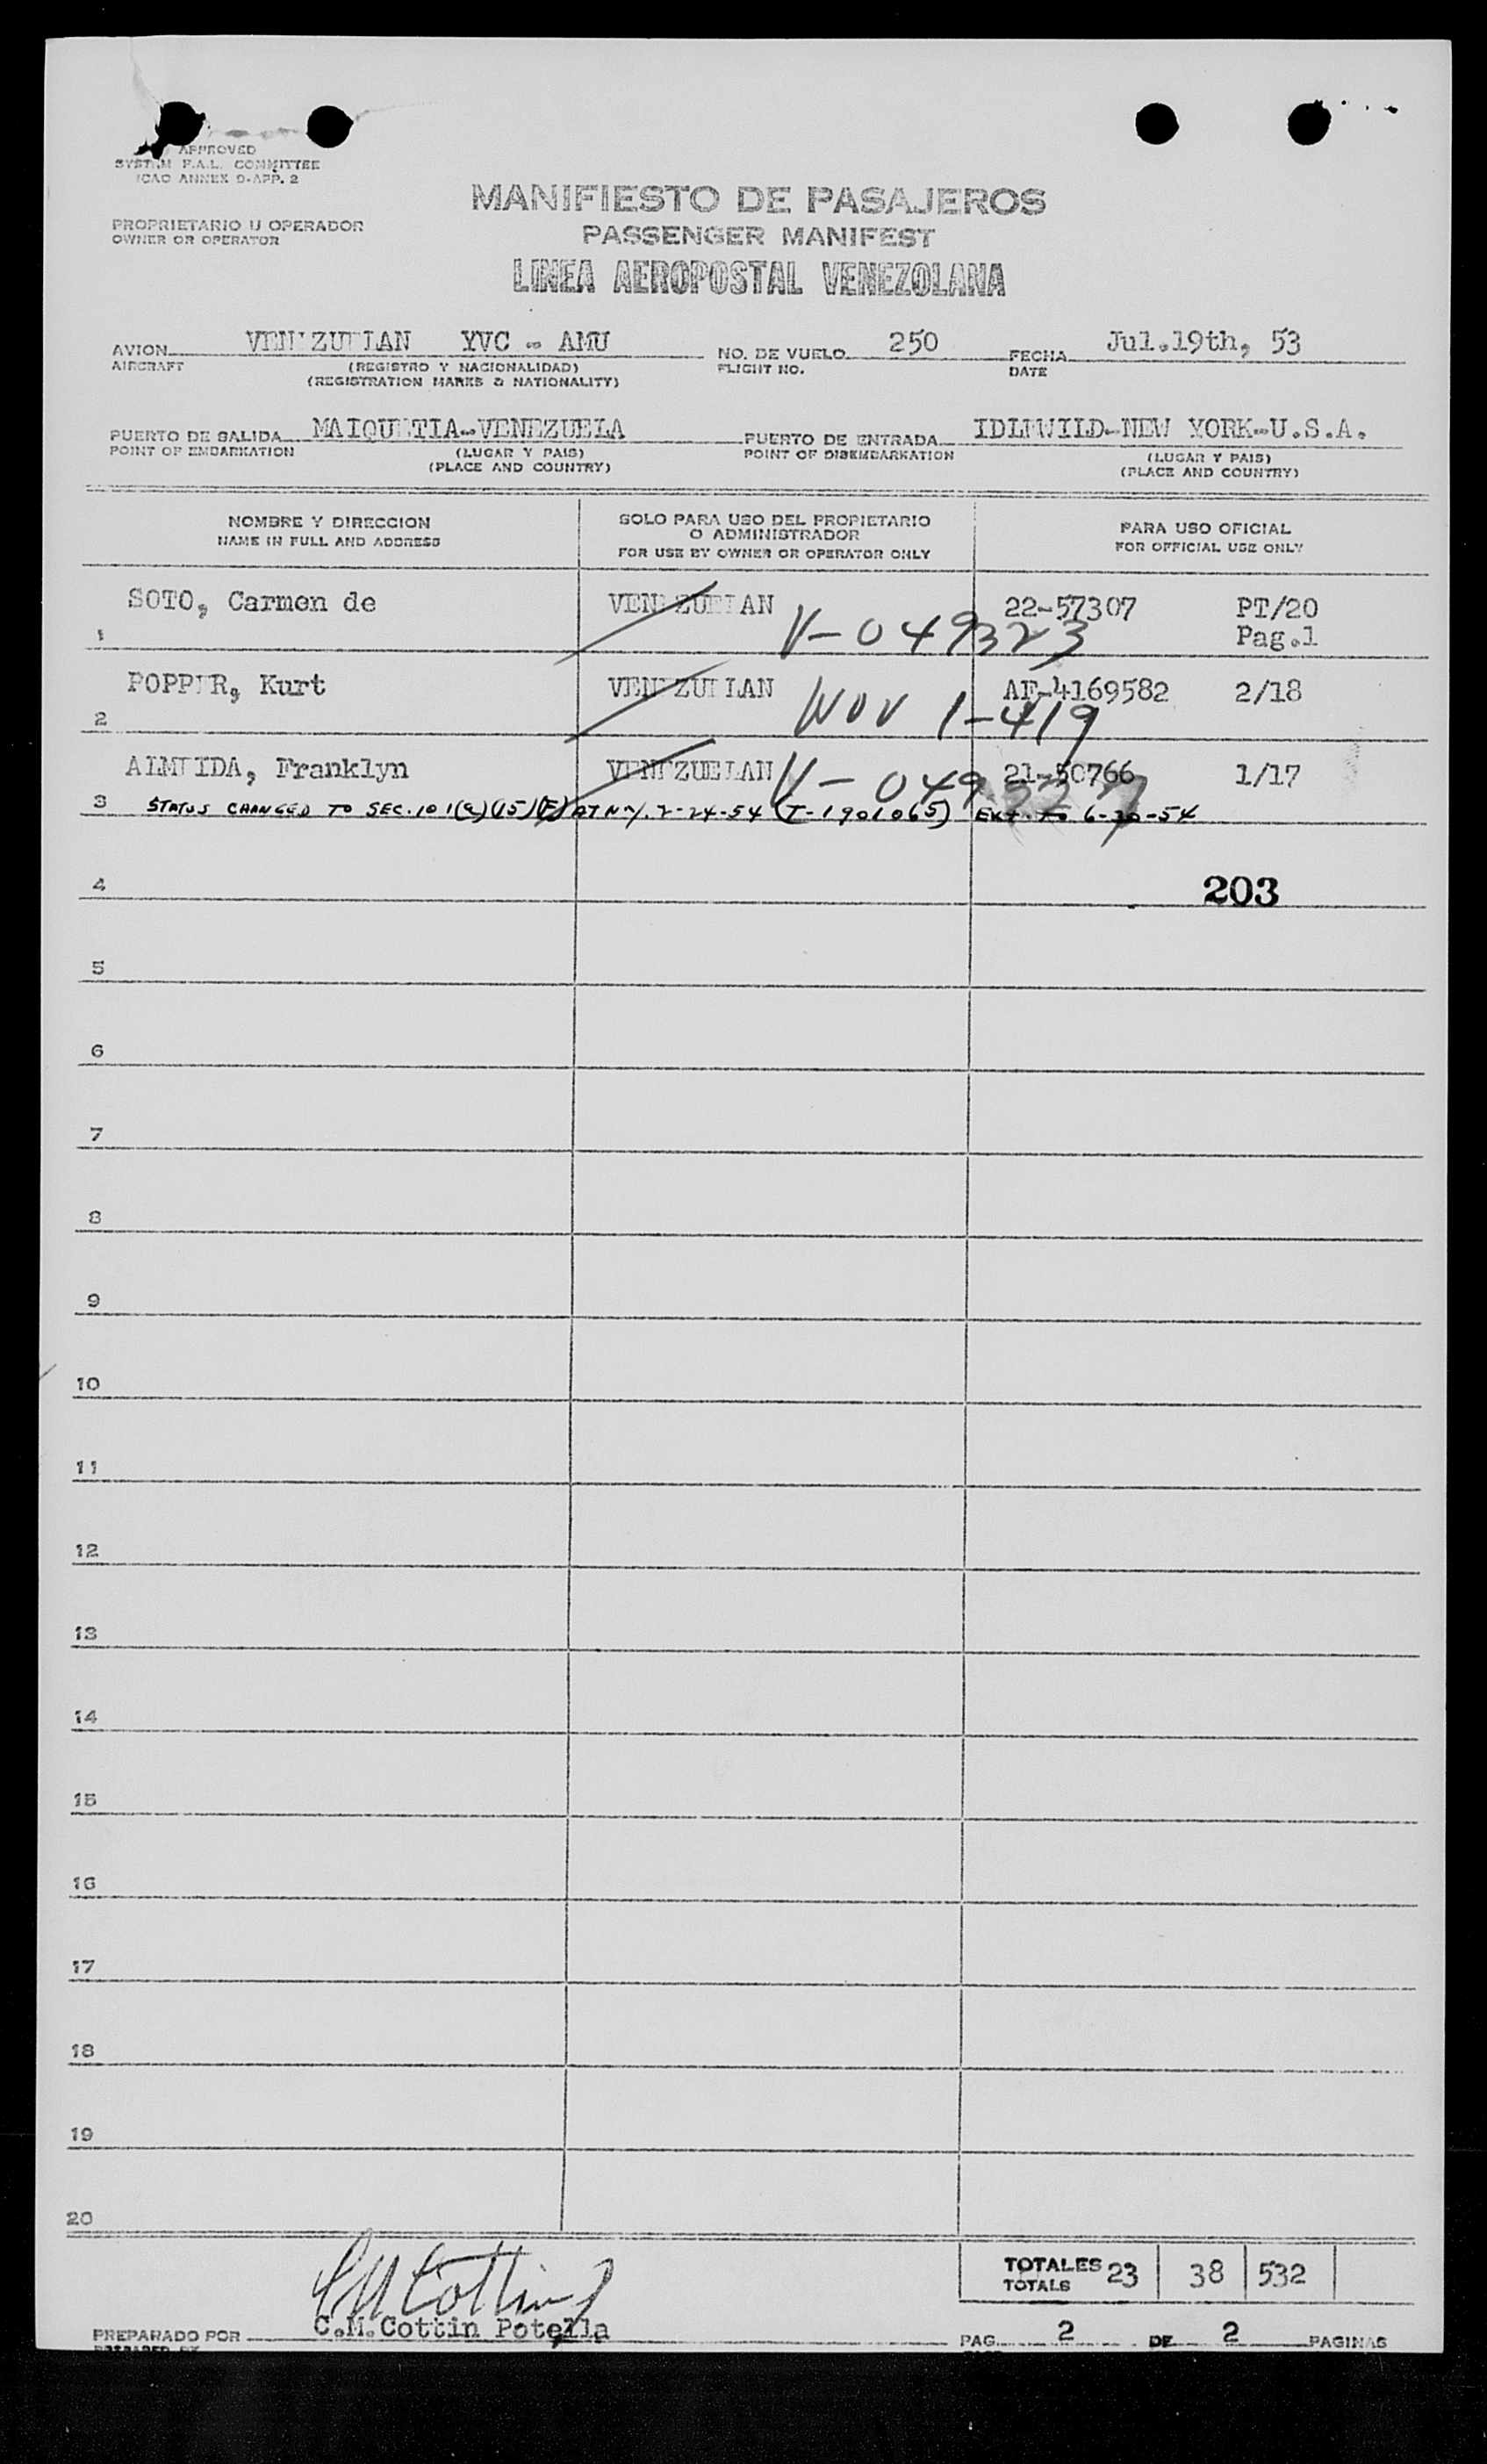 APPROVED
SYSTEM F.A.L. COMMITTEE
ICAO ANNEX 9-APP. 2
MANIFIESTO DE PASAJEROS
PROPRIETARIO U OPERADOR
OWNER OR OPERATOR
PASSENGER MANIFEST
LINEA AEROPOSTAL VENEZOLANA
AVION VENEZUELAN YVC - AMU NO. DE VUELO 250 FECHA Jul.19th, 53
AIRCRAFT (REGISTRO Y NACIONALIDAD) FLIGHT NO. DATE
(REGISTRATION MARKS & NATIONALITY)
PUERTO DE SALIDA MAIQUETIA-VENEZUELA PUERTO DE ENTRADA IDLEWILD-NEW YORK-U.S.A.
POINT OF EMBARKATION (LUGAR Y PAIS) POINT OF DISEMBARKATION (LUGAR Y PAIS)
(PLACE AND COUNTRY) (PLACE AND COUNTRY)
NOMBRE Y DIRECCION SOLO PARA USO DEL PROPIETARIO PARA USO OFICIAL
NAME IN FULL AND ADDRESS O ADMINISTRADOR FOR OFFICIAL USE ONLY
FOR USE BY OWNER OR OPERATOR ONLY
SOTO, Carmen de VENEZUELAN 22-57307 PT/20
1 V-049323 Pag.1
POPPER, Kurt VENEZUELAN AE-4169582 2/18
2 WOV 1-419
ALMEIDA, Franklyn VENEZUELAN V-049 21-50766 1/17
3 STATUS CHANGED TO SEC.101(a)(15)(F) AT N.Y. 2-24-54 (T-1901065) EXT. TO 6-30-54
4 203
5
6
7
8
9
10
11
12
13
14
15
16
17
18
19
20
TOTALES 23 38 532
TOTALS
PREPARADO POR C.M.Cottin Potella PAG. 2 DE 2 PAGINAS
PREPARED BY